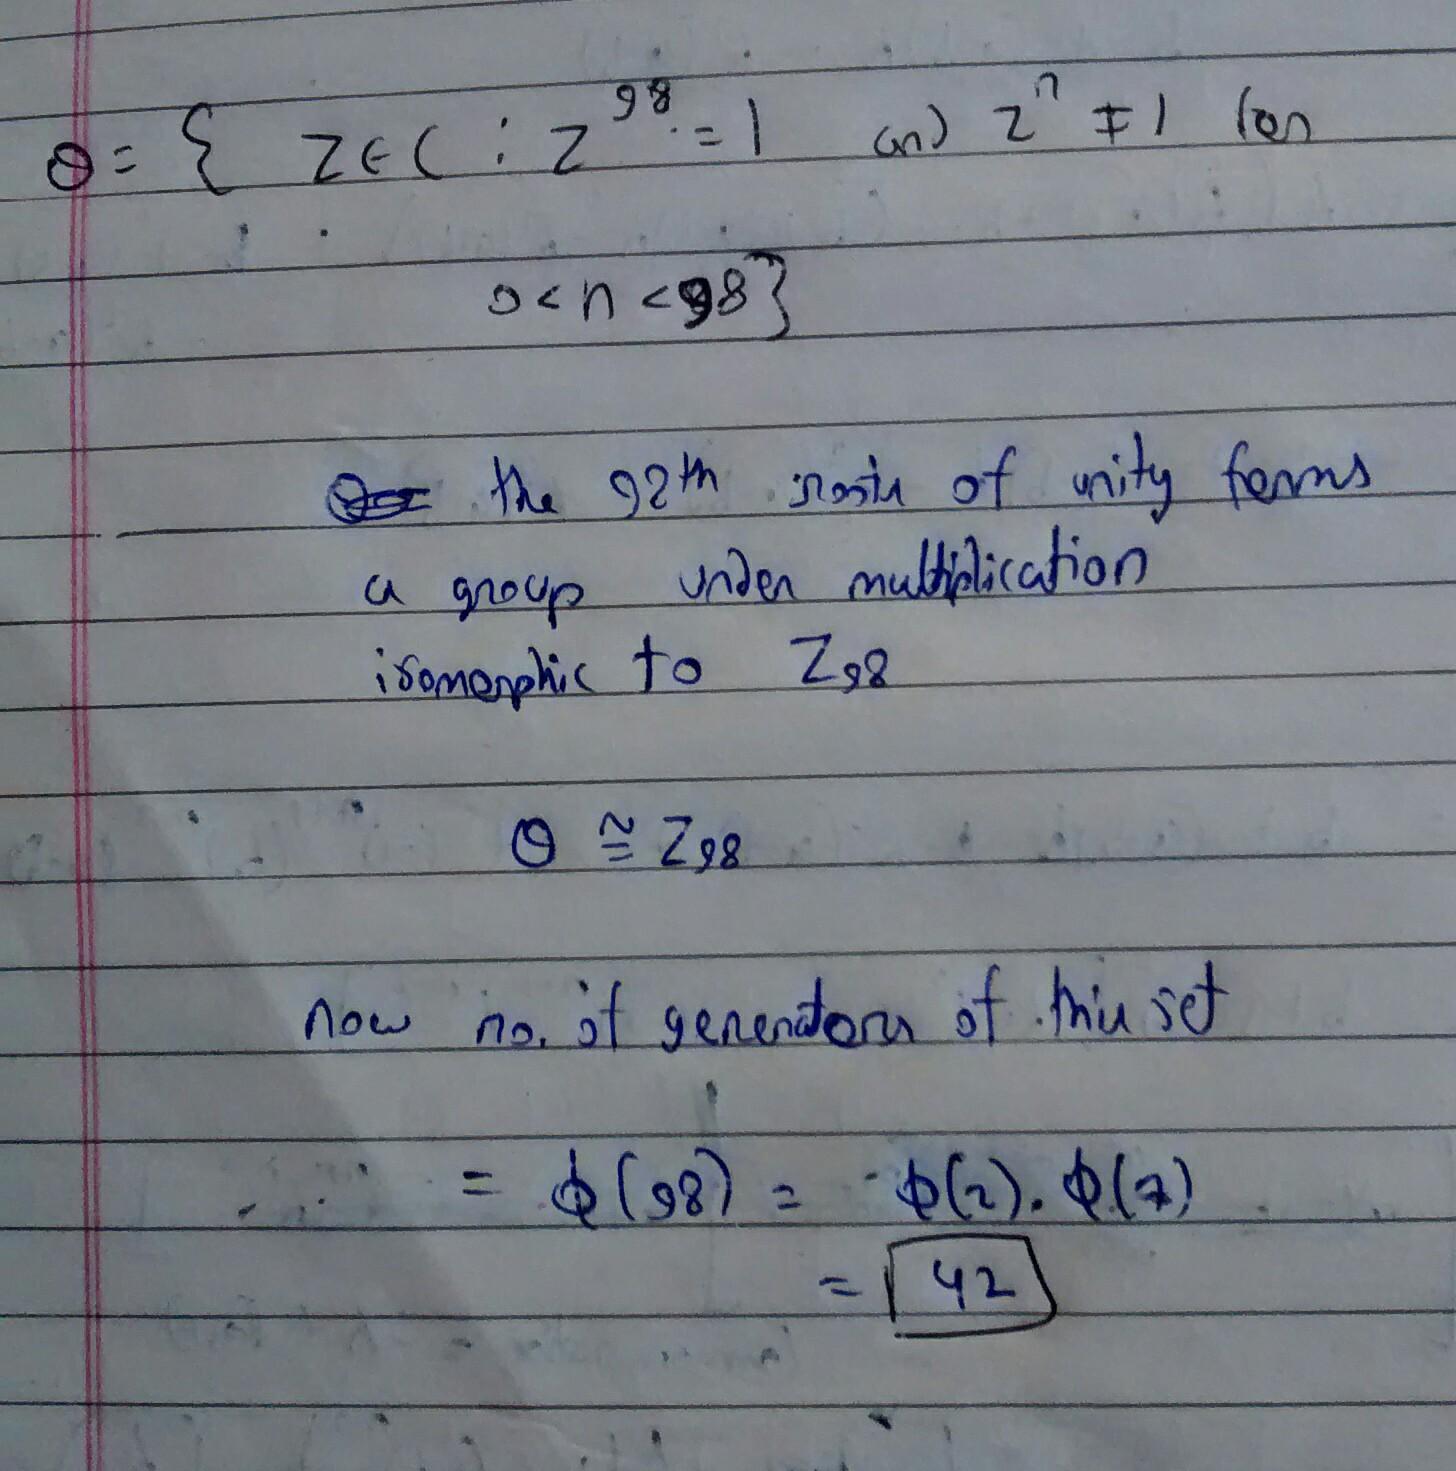 θ = { Z ∈ C : Z^98 = 1 and Z^n ≠ 1 for
0 < n < 98 }
the 98th roots of unity forms
a group under multiplication
isomorphic to Z_98
θ ≅ Z_98
now no. of generators of this set
= ϕ(98) = ϕ(2). ϕ(7)
= 42